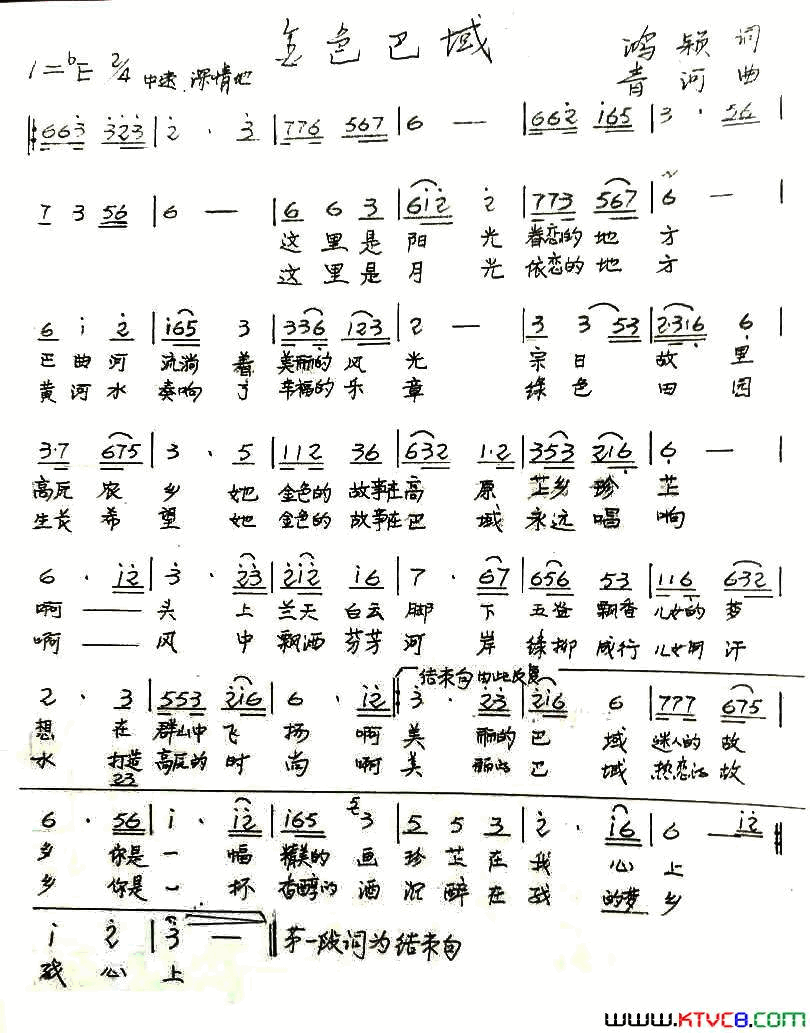 金色巴域
1=♭E 2/4 中速 深情地
鸿颖 词
青河 曲
663 323 | 2 · 3 | 776 567 | 6 — | 662 165 | 3 · 56 |
7 3 56 | 6 — | 6 6 3 | 612 2 | 773 567 | 6 — |
这里是阳光眷恋的地方
这里是月光依恋的地方
6 1 2 | 165 3 | 336 123 | 2 — | 3 3 53 | 2·316 6 |
巴曲河流淌着美丽的风光宗日故里
黄河水奏响了幸福的乐章绿色田园
3·7 675 | 3 · 5 | 112 36 | 632 1·2 | 353 216 | 6 — |
高瓦农乡她金色的故事在高原芷乡珍芷
生长希望她金色的故事在巴域永远唱响
6 · 12 | 3 · 23 | 212 16 | 7 · 67 | 656 53 | 116 632 |
啊——头上兰天白云脚下五谷飘香儿女的梦
啊——风中飘洒芬芳河岸绿柳成行儿女用汗
结束句由此反复
2 · 3 | 553 216 | 6 · 12 | 3 · 23 | 216 6 | 777 675 |
想在群山中飞扬啊美丽的巴域迷人的故
水打造高瓦的时尚啊美丽的巴域热恋的故
23
6 · 56 | 1 · 12 | 165 3 | 5 5 3 | 2 · 16 | 6 — 12
乡你是一幅精美的画珍芷在我心上
乡你是一杯香醇的酒沉醉在我的梦乡
1 2 | 3 — | 第一段词为结束句
我心上
www.KTVC8.com